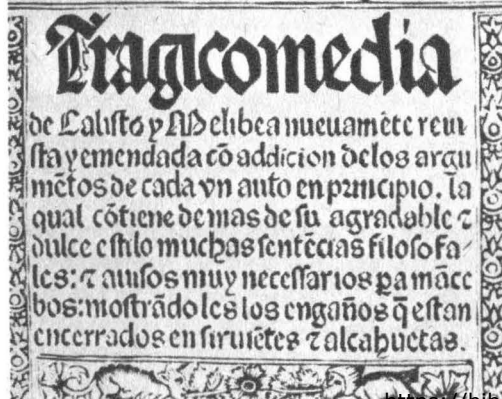 Tragicomedia
de Calisto y Melibea nueuamẽte reui
sta y emendada cõ addicion delos argu
mẽtos de cada vn auto en principio. la
qual cõtiene demas de su agradable ⁊
dulce estilo muchas sentẽcias filosofa⸗
les: ⁊ auisos muy necessarios ꝑa mãce
bos: mostrãdo les los engaños q̃ estan
encerrados en siruiẽtes ⁊ alcahuetas.